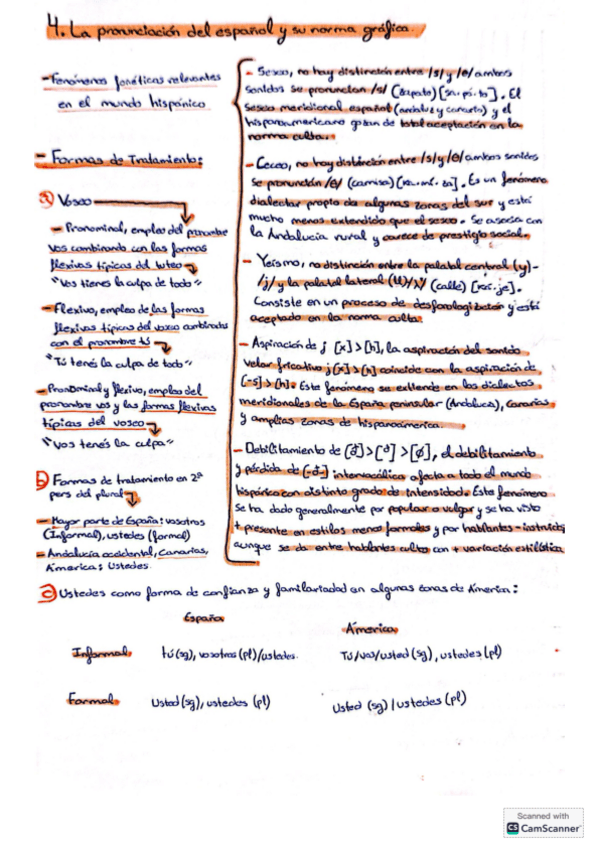 4. La pronunciación del español y su norma gráfica.
- Fenómenos fonéticos relevantes
en el mundo hispánico
- Formas de Tratamiento:
a) Voseo
- Pronominal, empleo del pronombre
vos combinando con las formas
flexivas típicas del tuteo
"Vos tienes la culpa de todo"
- Flexivo, empleo de las formas
flexivas típicas del voseo combinadas
con el pronombre tú
"Tú tenés la culpa de todo"
- Pronominal y flexivo, empleo del
pronombre vos y las formas flexivas
típicas del voseo
"Vos tenés la culpa"
b) Formas de tratamiento en 2ª
pers del plural
- Mayor parte de España: vosotros
(Informal), ustedes (formal)
- Andalucía occidental, Canarias,
America: Ustedes.
- Seseo, no hay distinción entre /s/ y /θ/ ambos
sonidos se pronuncian /s/ (zapato) [sa.pá.to]. El
seseo meridional español (andaluz y canario) y el
hispanoamericano gozan de total aceptación en la
norma culta.
- Ceceo, no hay distinción entre /s/ y /θ/ ambos sonidos
se pronunción /θ/ (camisa) [ka.mí.θa]. Es un fenómeno
dialectar propio de algunas zonas del sur y está
mucho menos extendido que el seseo. Se asocia con
la Andalucía rural y carece de prestigio social.
- Yeísmo, no distinción entre la palatal central (y)-
/j/ y la palatal lateral (ll)/ʎ/ (calle) [ká.je].
Consiste en un proceso de desfonologización y está
aceptado en la norma culta.
- Aspiración de j [x] > [h], la aspiración del sonido
velar fricativo j [x] > [h] coincide con la aspiración de
[-s] > [h]. Este fenómeno se extiende en los dialectos
meridionales de la España peninsular (Andalucía), Canarias
y amplias zonas de hispanoamerica.
- Debilitamiento de [đ] > [ᵈ] > [ø], el debilitamiento
y pérdida de [-đ-] intervocálica afecta a todo el mundo
hispánico con distinto grado de intensidad. Este fenómeno
se ha dado generalmente por popular o vulgar y se ha visto
+ presente en estilos menos formales y por hablantes - instruidos
aunque se da entre hablantes cultos con + variación estilística
c) Ustedes como forma de confianza y familiaridad en algunas zonas de America:
España
América
Informal. tú (sg), vosotros (pl)/ustedes. Tú/vos/usted (sg), ustedes (pl)
Formal. Usted (sg), ustedes (pl) Usted (sg) / ustedes (pl)
Scanned with
CS CamScanner